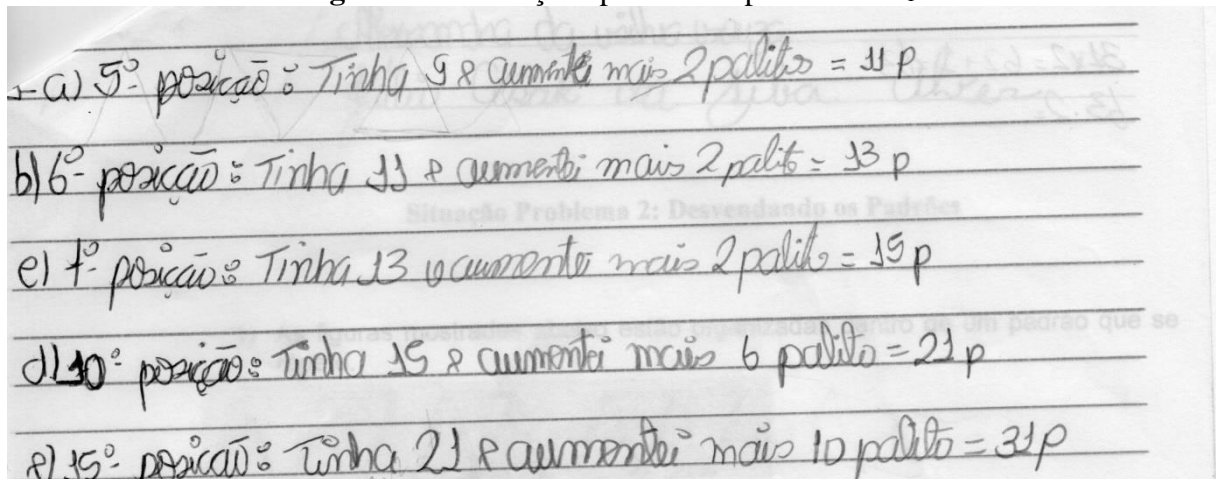 a) 5º posição: Tinha 9 e aumentei mais 2 palitos = 11 p
b) 6º posição: Tinha 11 e aumentei mais 2 palito = 13 p
Situação Problema 2: Desvendando os Padrões
c) 7º posição: Tinha 13 e aumentei mais 2 palito = 15 p
As figuras mostradas estão organizadas dentro de um padrão que se
d) 10º posição: Tinha 15 e aumentei mais 6 palito = 21 p
e) 15º posição: Tinha 21 e aumentei mais 10 palito = 31 p